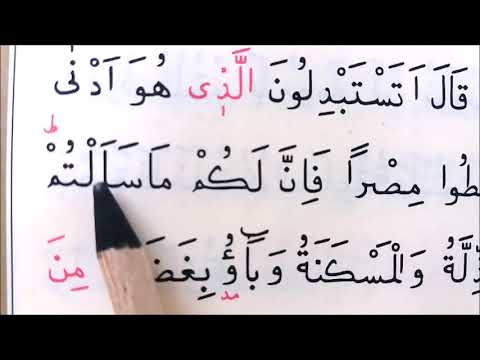 قَالَ اَتَسْتَبْدِلُونَ الَّذٖى هُوَ اَدْنٰى
ط
طُوا مِصْرًا فَاِنَّ لَكُمْ مَا سَاَلْتُمْ
ذِّلَّةُ وَالْمَسْكَنَةُ وَبَٓاؤُ بِغَضَ مِنَ
مد